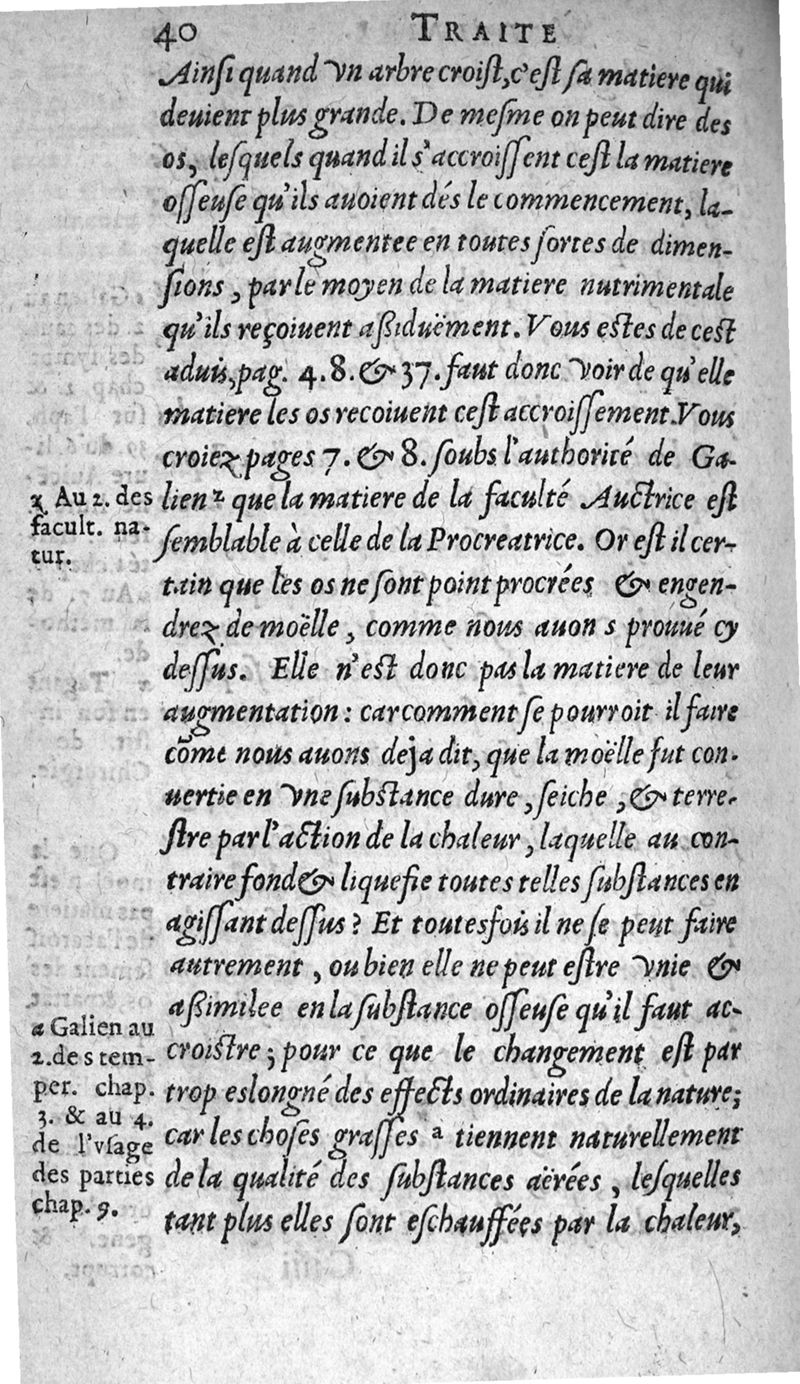 40 TRAITE
Ainſi quand vn arbre croiſt, c'eſt ſa matiere qui
deuient plus grande. De meſme on peut dire des
os, leſquels quand il s'accroiſſent ceſt la matiere
oſſeuſe qu'ils auoient dés le commencement, la-
quelle eſt augmentee en toutes ſortes de dimen-
ſions, par le moyen de la matiere nutrimentale
qu'ils reçoiuent aßiduëment. Vous eſtes de ceſt
aduis, pag. 4. 8. & 37. faut donc voir de qu'elle
matiere les os recoiuent ceſt accroiſſement. Vous
croiez pages 7. & 8. ſoubs l'authorité de Ga-
lien z que la matiere de la faculté Auctrice eſt
ſemblable à celle de la Procreatrice. Or eſt il cer-
tain que les os ne ſont point procrées & engen-
drez de moëlle, comme nous auon s prouué cy
deſſus. Elle n'eſt donc pas la matiere de leur
augmentation : car comment ſe pourroit il faire
cõme nous auons deja dit, que la moëlle fut con-
uertie en vne ſubſtance dure, ſeiche, & terre-
ſtre par l'action de la chaleur, laquelle au con-
traire fond & liquefie toutes telles ſubſtances en
agiſſant deſſus ? Et toutesfois il ne ſe peut faire
autrement, ou bien elle ne peut eſtre vnie &
aßimilee en la ſubſtance oſſeuſe qu'il faut ac-
croiſtre ; pour ce que le changement eſt par
trop eslongné des effects ordinaires de la nature;
car les choſes graſſes a tiennent naturellement
de la qualité des ſubſtances aërées, leſquelles
tant plus elles ſont eſchauffées par la chaleur,
z Au 2. des
facult. na-
tur.
a Galien au
2. des tem-
per. chap.
3. & au 4.
de l'vſage
des parties
chap. 9.